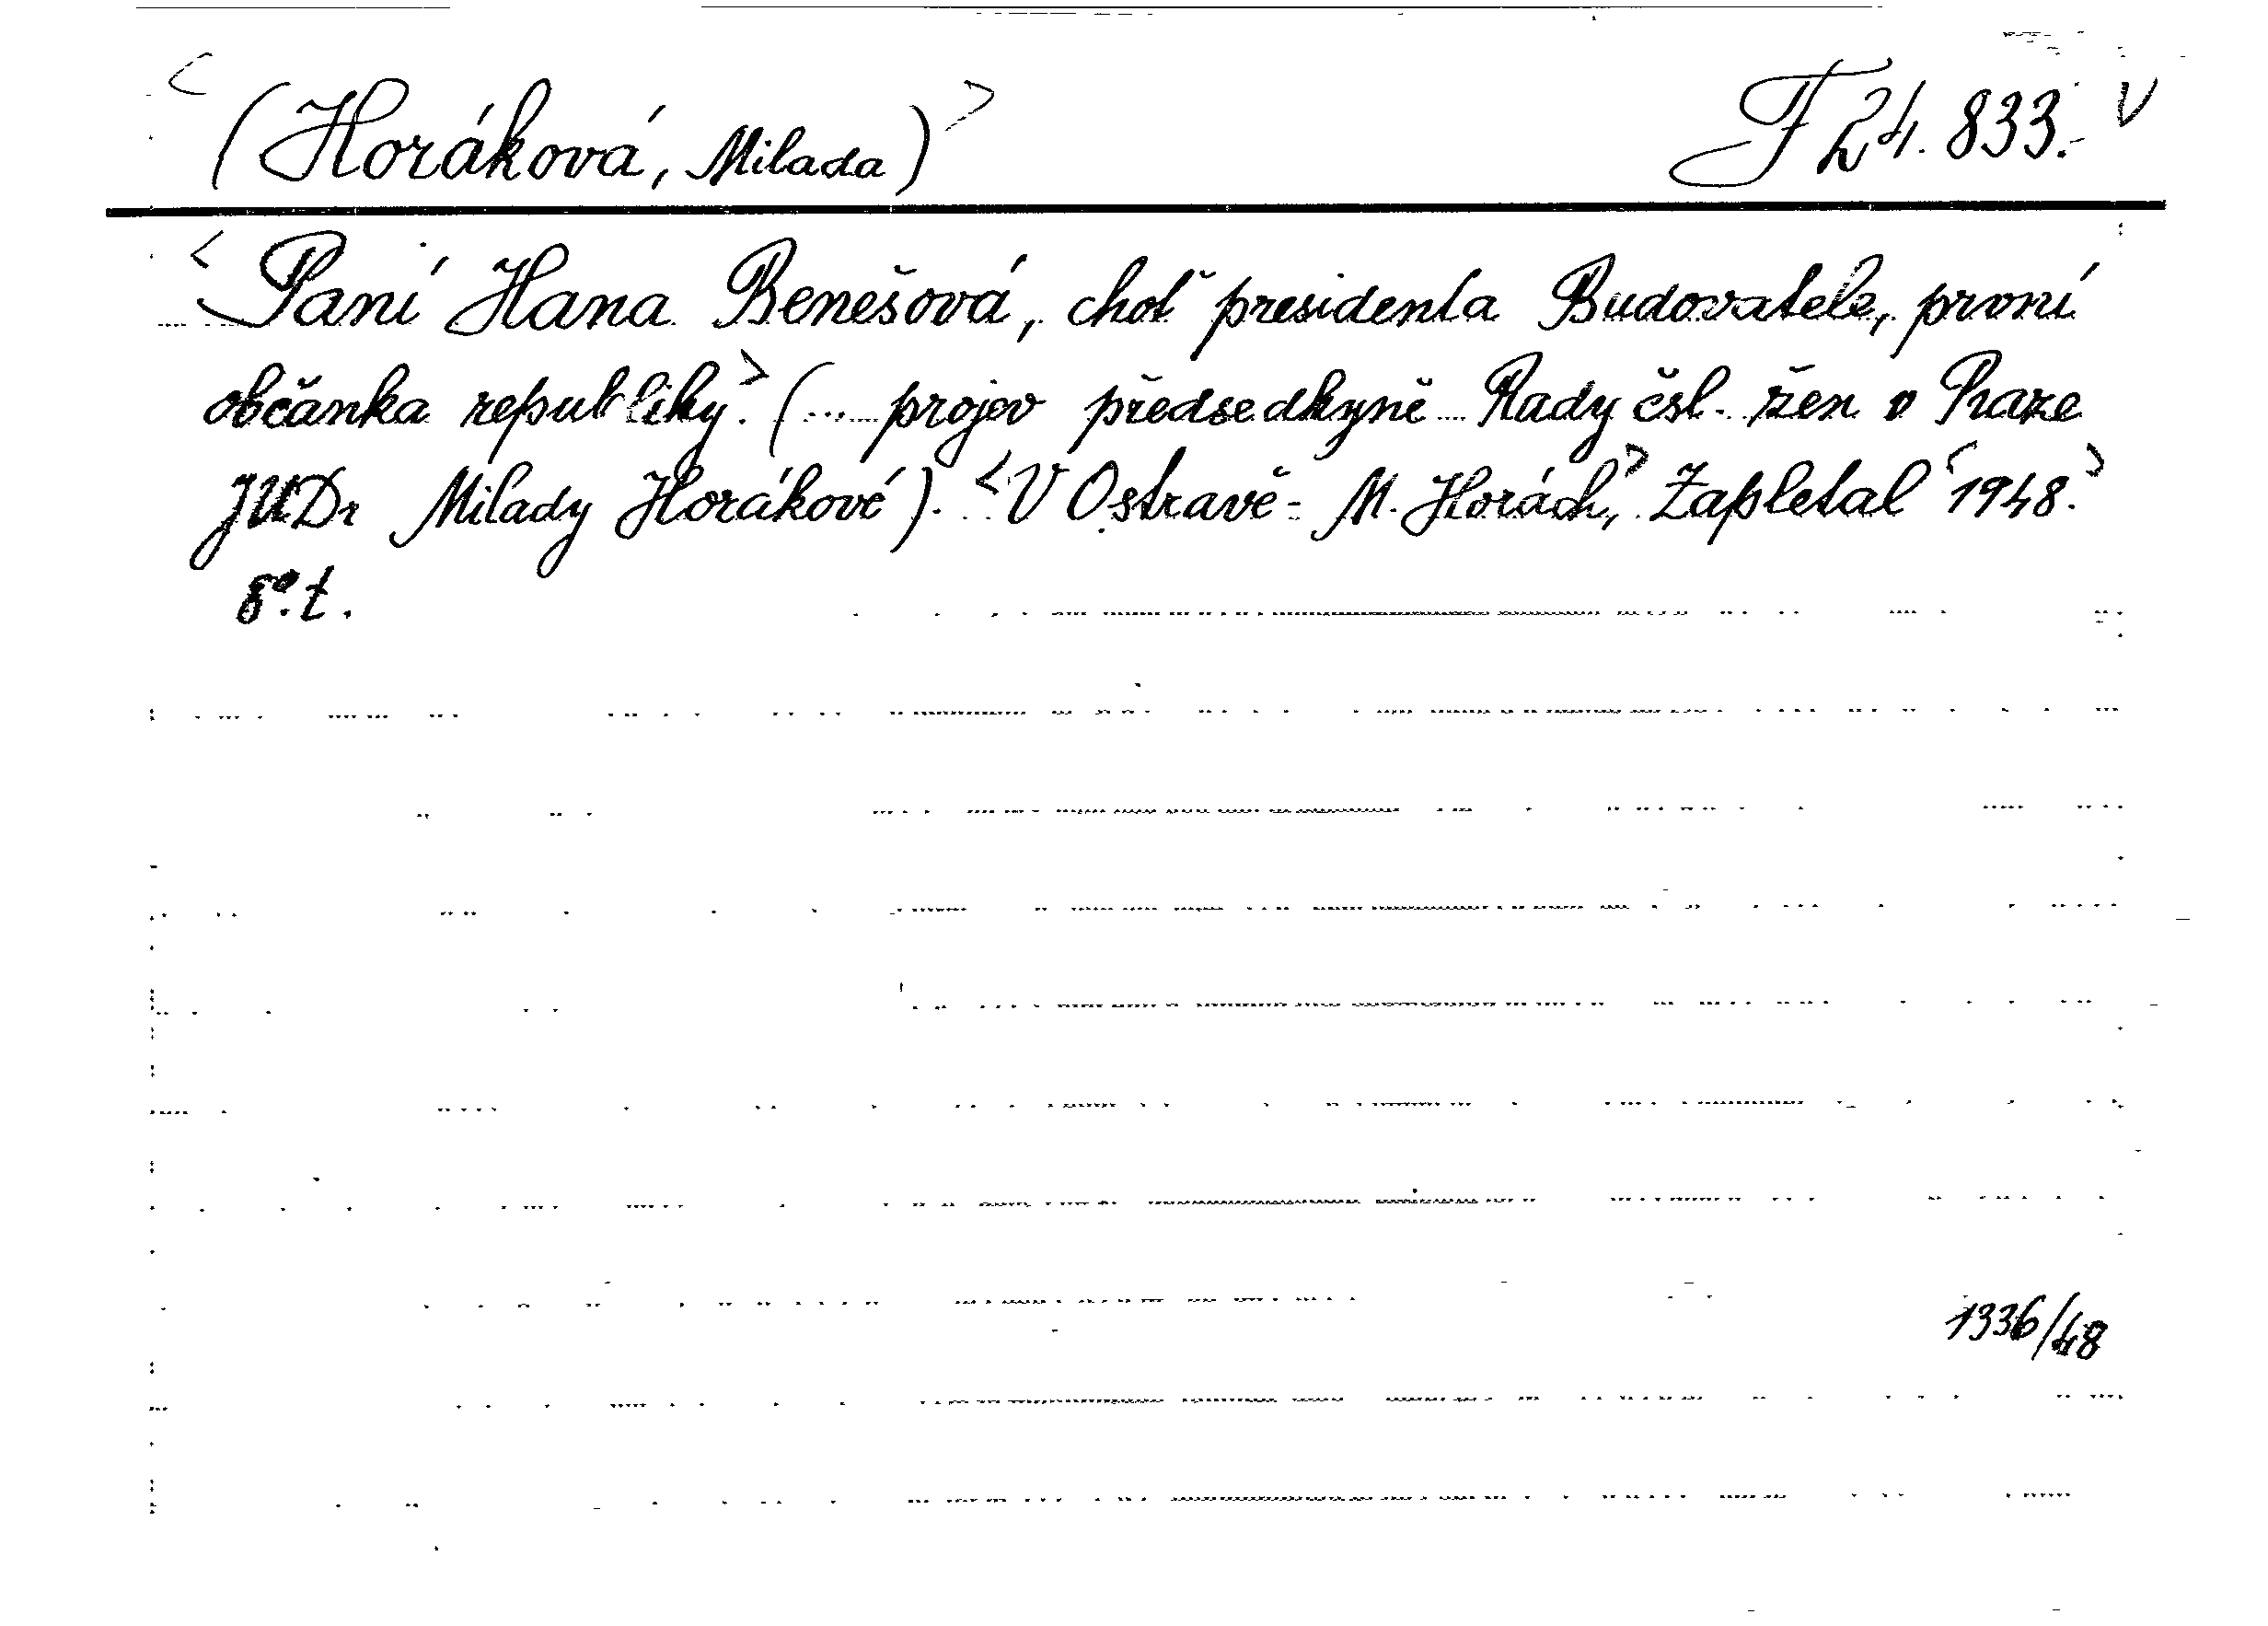 <(Horáková, Milada)> F 24.833. V
<Paní Hana Benešová, choť presidenta Budovatele, první
občanka republiky.> (... projev předsedkyně Rady čsl. žen v Praze
JUDr Milady Horákové). <V Ostravě- M. Horách,> Zapletal <1948.>
8°. t.
1336/48